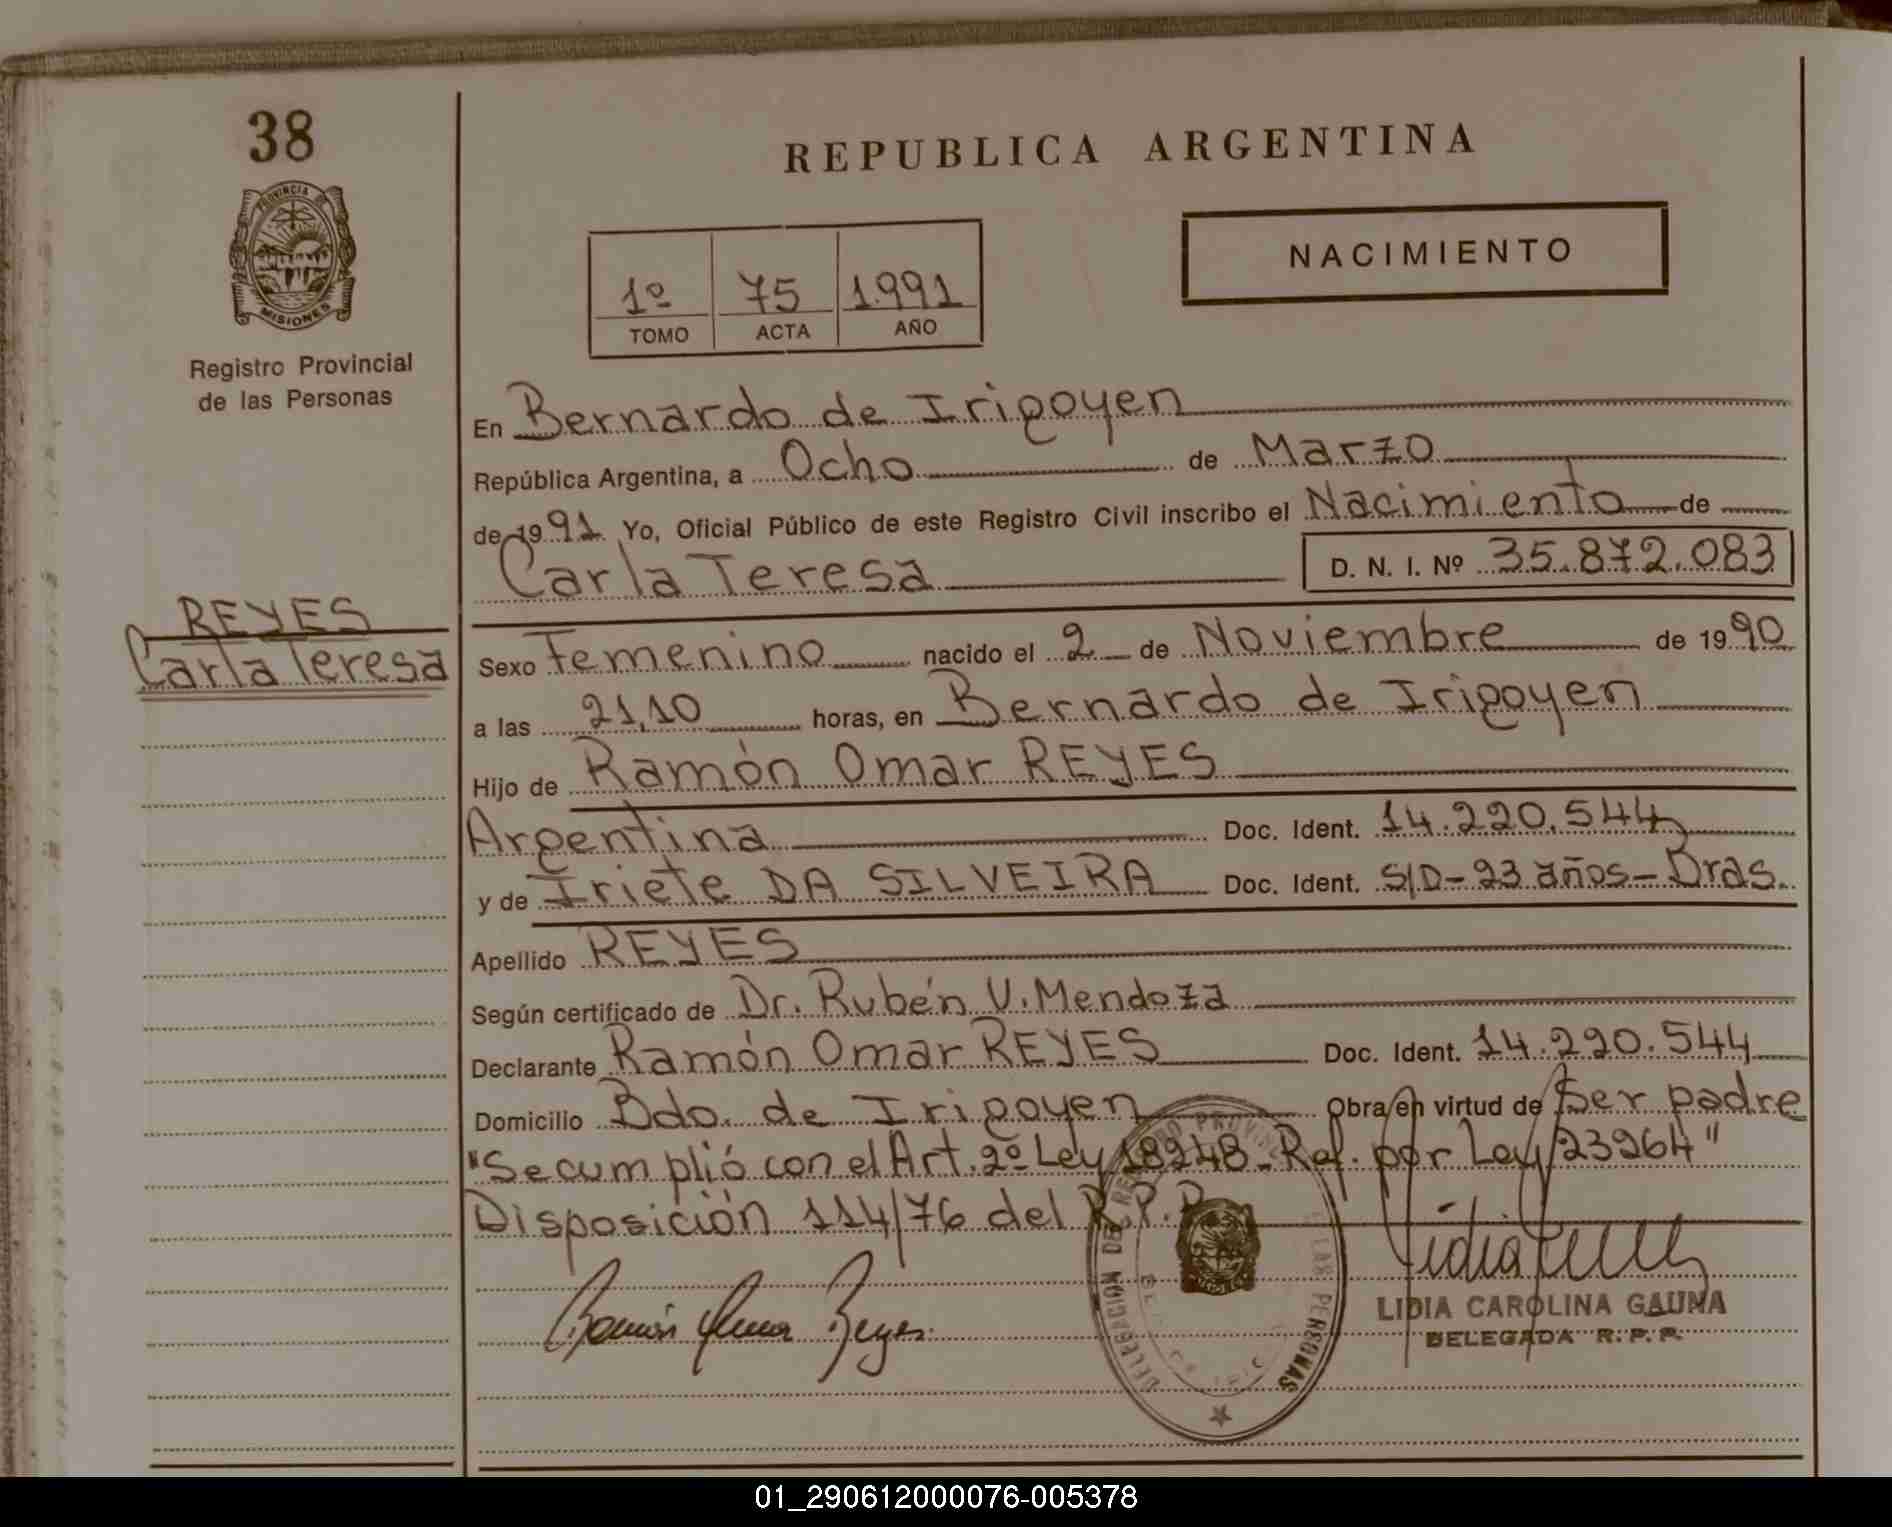 38
PROVINCIA DE
MISIONES
Registro Provincial
de las Personas
REPUBLICA ARGENTINA
NACIMIENTO
1º 75 1.991
TOMO ACTA AÑO
En Bernardo de Irigoyen
República Argentina, a Ocho de Marzo
de 1991 Yo, Oficial Público de este Registro Civil inscribo el Nacimiento de
Carla Teresa D. N. I. Nº 35.872.083
REYES
Carla Teresa
Sexo Femenino nacido el 2 de Noviembre de 1990
a las 21,10 horas, en Bernardo de Irigoyen
Hijo de Ramón Omar REYES
Argentina Doc. Ident. 14.220.544
y de Iriete DA SILVEIRA Doc. Ident. S/D-23 años-Bras.
Apellido REYES
Según certificado de Dr. Rubén V. Mendoza
Declarante Ramón Omar REYES Doc. Ident. 14.220.544
Domicilio Bdo. de Irigoyen Obra en virtud de Ser padre
"Se cumplió con el Art. 2º Ley 18248-Ref. por Ley 23264"
Disposición 114/76 del R.P.P.
Ramón Omar Reyes
DELEGACION DEL REGISTRO PROVINCIAL DE LAS PERSONAS
LIDIA CAROLINA GAUNA
DELEGADA R.P.P.
01_290612000076-005378